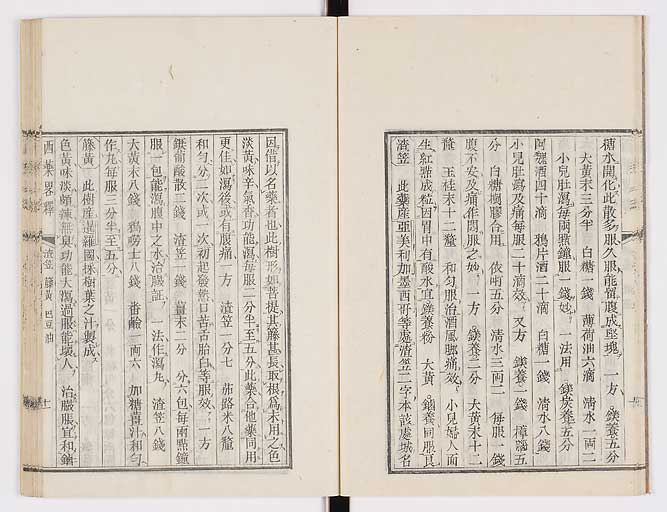 糖水開化此散多服久服能領腹成堅塊 一方 鎂養五分
大黃末三分半 白糖一錢 薄荷油六滴 清水一兩二
小兒肚瀉每兩點鐘服一錢妙 一法用 鎂炭養五分
阿魏酒四十滴 鴉片酒二十滴 白糖一錢 清水八錢
小兒肚瀉及痛每服二十滴效 又方 鎂養一錢 樟腦五
分 白糖樹膠合用 依喇五分 清水三兩二 每服一錢
腹不安及痛作悶服之妙 一方 鎂養二分 大黃末十二
釐 玉桂末十二釐 和勻服治酒風脚痛效 小兒婦人面
生紅雜成粒因胃中有酸水宜鎂養粉 大黃 鏀養同服良
渣笠 此藥產亞美利加墨西哥等處渣笠二字本該處城名
因借以名藥者也此樹形如菩提其籐甚長取根爲末用之色
淡黃味辛氣香功能瀉每服二分半至五分此藥合他藥同用
更佳如瀉後或有腹痛一方 渣笠一分七 茄路米八釐
和勻分二次或一次初起發熱口苦舌胎白等服效 一方
鏀葡酸散二錢 渣笠一錢 薑末二分 分六包每兩點鐘
服一包能瀉腹中之水治臌証 一法作瀉丸 渣笠八錢
大黃末八錢 鴉勞士八錢 番鹼一兩六 加糖薑汁和勻
作丸每服三分半至五分
籐黃 此樹產暹羅國採樹葉之汁製成
色黃味淡頗辣無臭功能大瀉過服能壞人 治臌脹宜和鏀
西藥畧釋 渣笠 籐黃 巴豆油 十一